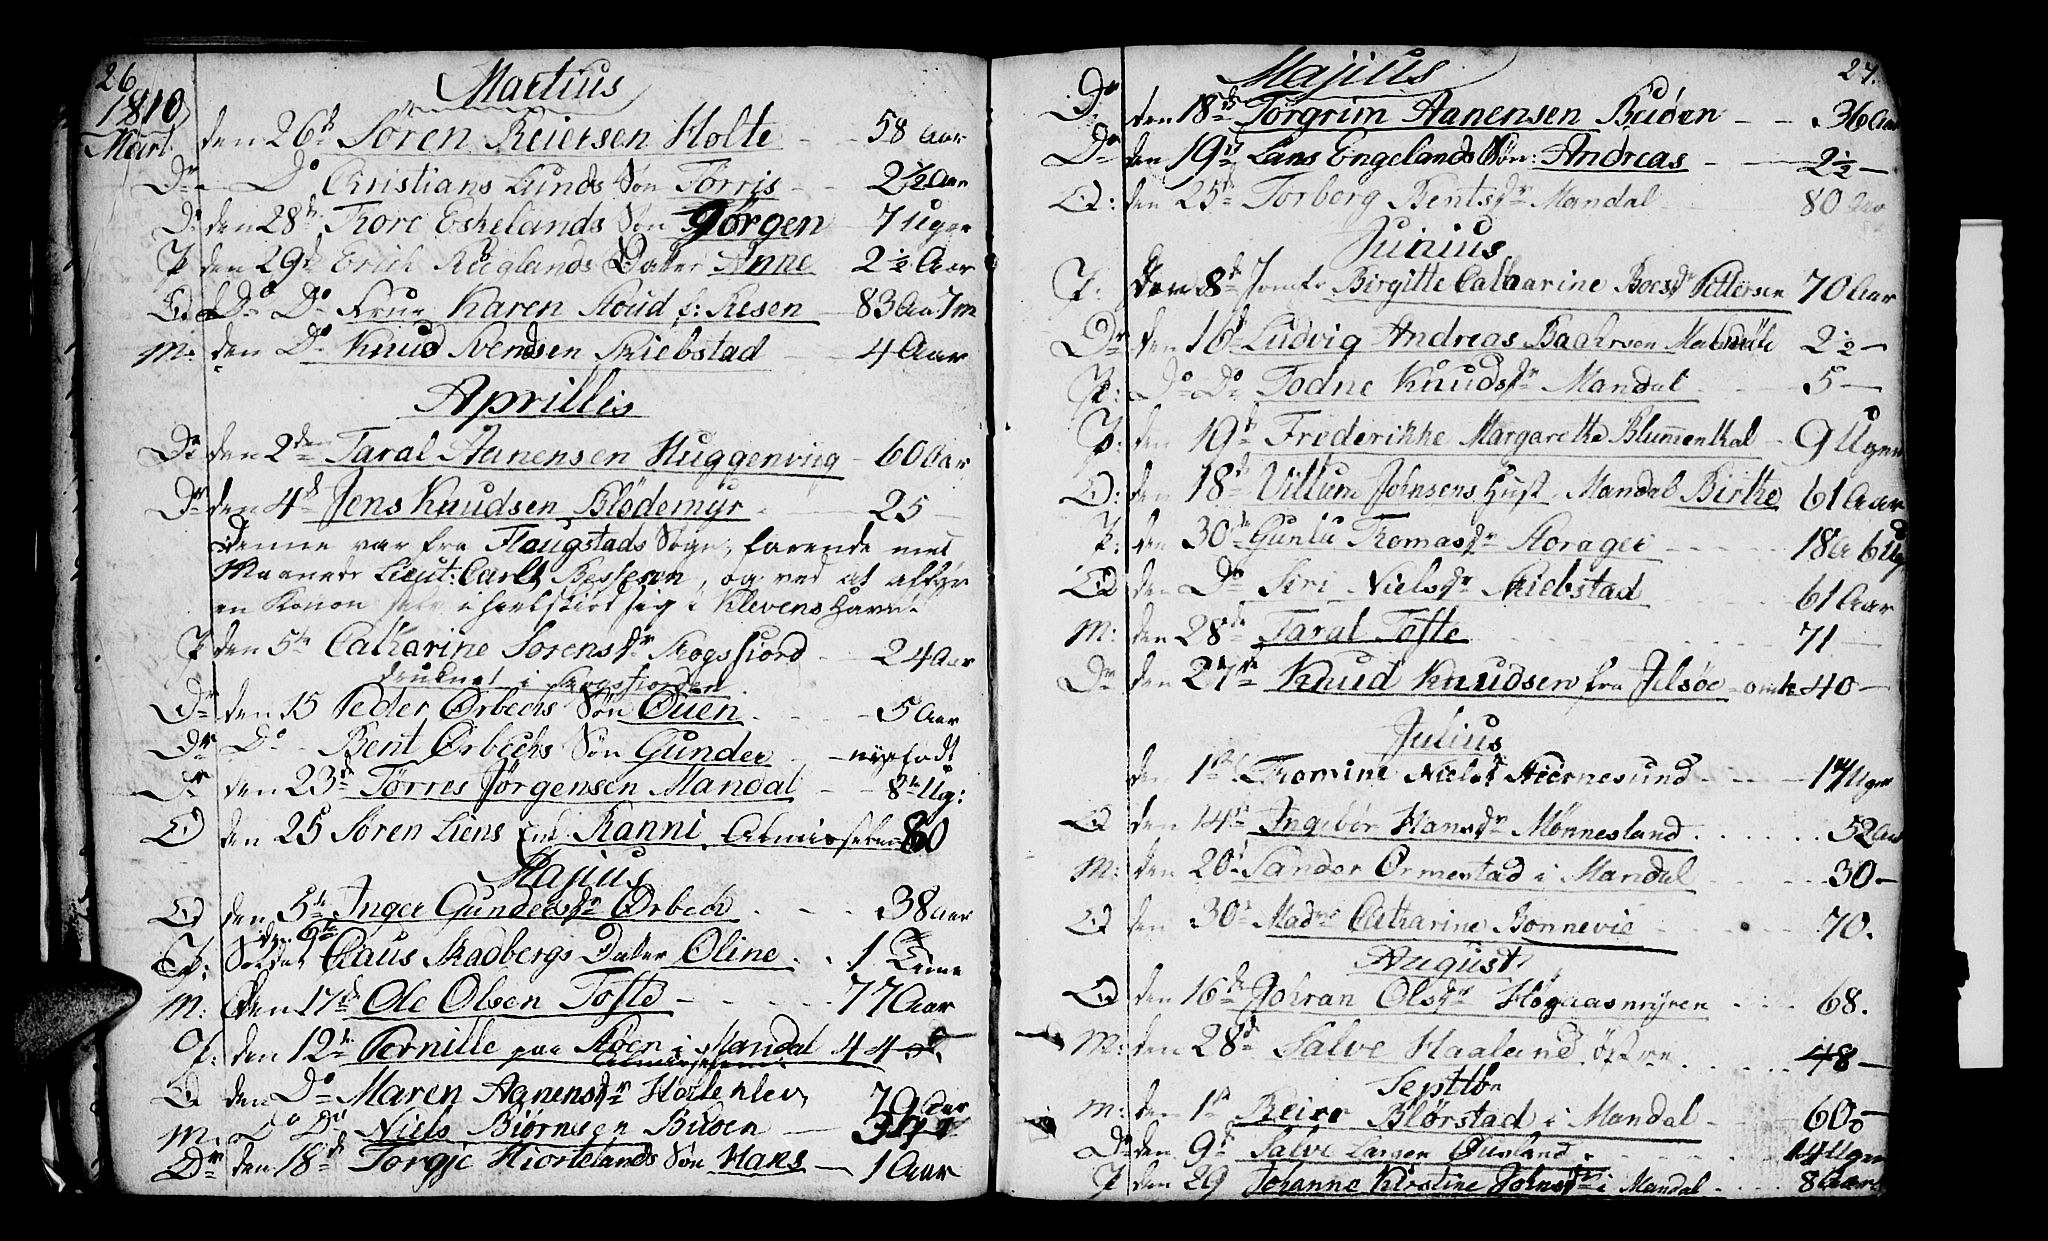 26
1810
Mart.
Martius
den 26de Søren Reiersen Holte 58 Aar
Dr Do Christians Lunds Søn Tørris 2½ Aar
D: den 28de Tore Eskelands Søn Jørgen 7 Uger
P den 29de Erich Ruglands Dater Anne 2½ Aar
Q Do Do Frue Karen Stoud f: Resen 83 Aar 7 m
M: den Do Knud Svendsen Skiebstad 4 Aar
Aprillis
Dr den 2den Taral Aanensen Huggenviig 60 Aar
Dr den 4de Jens Knudsen Blødemyr 25
Denne var fra Haugstads Sogn, farende med
Lieut: Carlt , og ved at affyre
en Kanon selv ihielskiød sig i Klevens Havn.
P den 5te Catharine Sørensdr Skogsfiord 24 Aar
druknet i Skogsfiorden
Dr den 15 Peder Ørbechs Søn Ouen 5 Aar
Dr Do Bent Ørbechs Søn Gunder nyefødt
Dr den 23de Tørres Jørgensen Mandal 8 Ug:
Q den 25 Søren Liens Enk Ranni, Almisselem 80
Majus
Q den 5te Inger Gundersdr Ørbech 38 Aar
P: den 6te Claus Skadbergs Dater Oline 1 Time
M: den 17de Ole Olsen Tofte 77 Aar
P: den 12te Pernille paa Øen i Mandal 44
Almisselem
Q den Do Maren Aanensdr Holleklev 70 Aar
M. Do Do Niels Biørnsen Buøen
Dr den 18de Torgje Hiortelands Søn Hans 1 Aar
27.
Majus
Dr den 18de Torgrim Aanensen Buøen 36 Aar
Dr den 19de Lars Engelands Søn: Andreas 2½
Q: den 25de Torborg Bentsdr Mandal 80 Aar
Junius
P: den 8de Jomfr Birgitte Catharine Boesdr Pettersen 70 Aar
Dr den 16de Ludvig Andreas Baahrsen Malmøe 2½
P: Do Do Todne Knudsdr Mandal 5
P: den 19de Frederikke Margarethe Blumenthal 9 Uger
Q: den 18de Villum Johnsens Hust Mandal Birthe 61 Aar
P: den 30te Gunlu Thomasdr Storager 18 a 6 Ug
Q den Do Siri Nielsdr Skiebstad 61 Aar
M: den 28de Taral Tofte 71
Dr den 27de Knud Knudsen fra Jelsøe omk 40
Julius
den 1ste Tromine Nielsd Hiernesund 14 Uger
Q den 14de Ingebør Hansdr Mønnesland 52 Aar
M: den 20de Sander Ormestad i Mandal 30
Q den 30te Madme Catharine Bonnevie 70.
August
Q den 16de Johran Olsdr Høgaasmyren 68.
M: den 28de Salve Haaland østre 48
Septbr
M: den 1ste Reier Blørstad i Mandal 60
Dr den 9de Salve Larsen Øusland 14 Uger
P den 29 Johanne Kirstine Johnsdr i Mandal 8 Aar